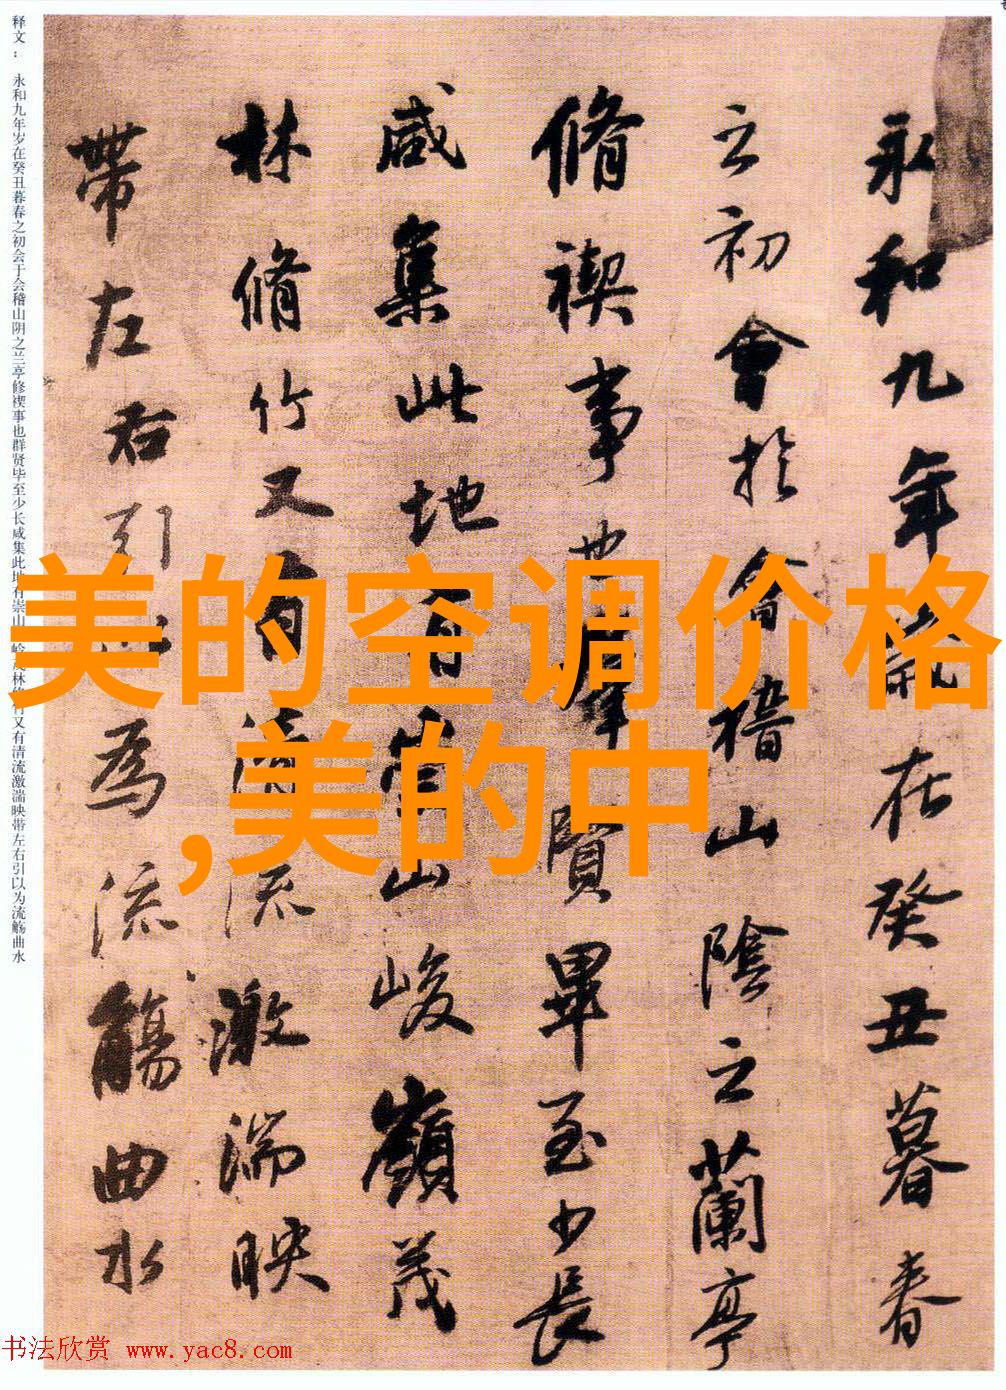 永和九年歲在癸丑暮春
之初會於會稽山陰之蘭亭
脩禊事也羣賢畢至少長
咸集此地有崇山峻嶺茂
林脩竹又有清流激湍映
帶左右引以為流觴曲水
释文：永和九年岁在癸丑暮春之初会于会稽山阴之兰亭修禊事也群贤毕至少长咸集此地有崇山峻岭茂林修竹又有清流激湍映带左右引以为流觞曲水
美的空调价格
,美的中
书法欣赏 www.yac8.com